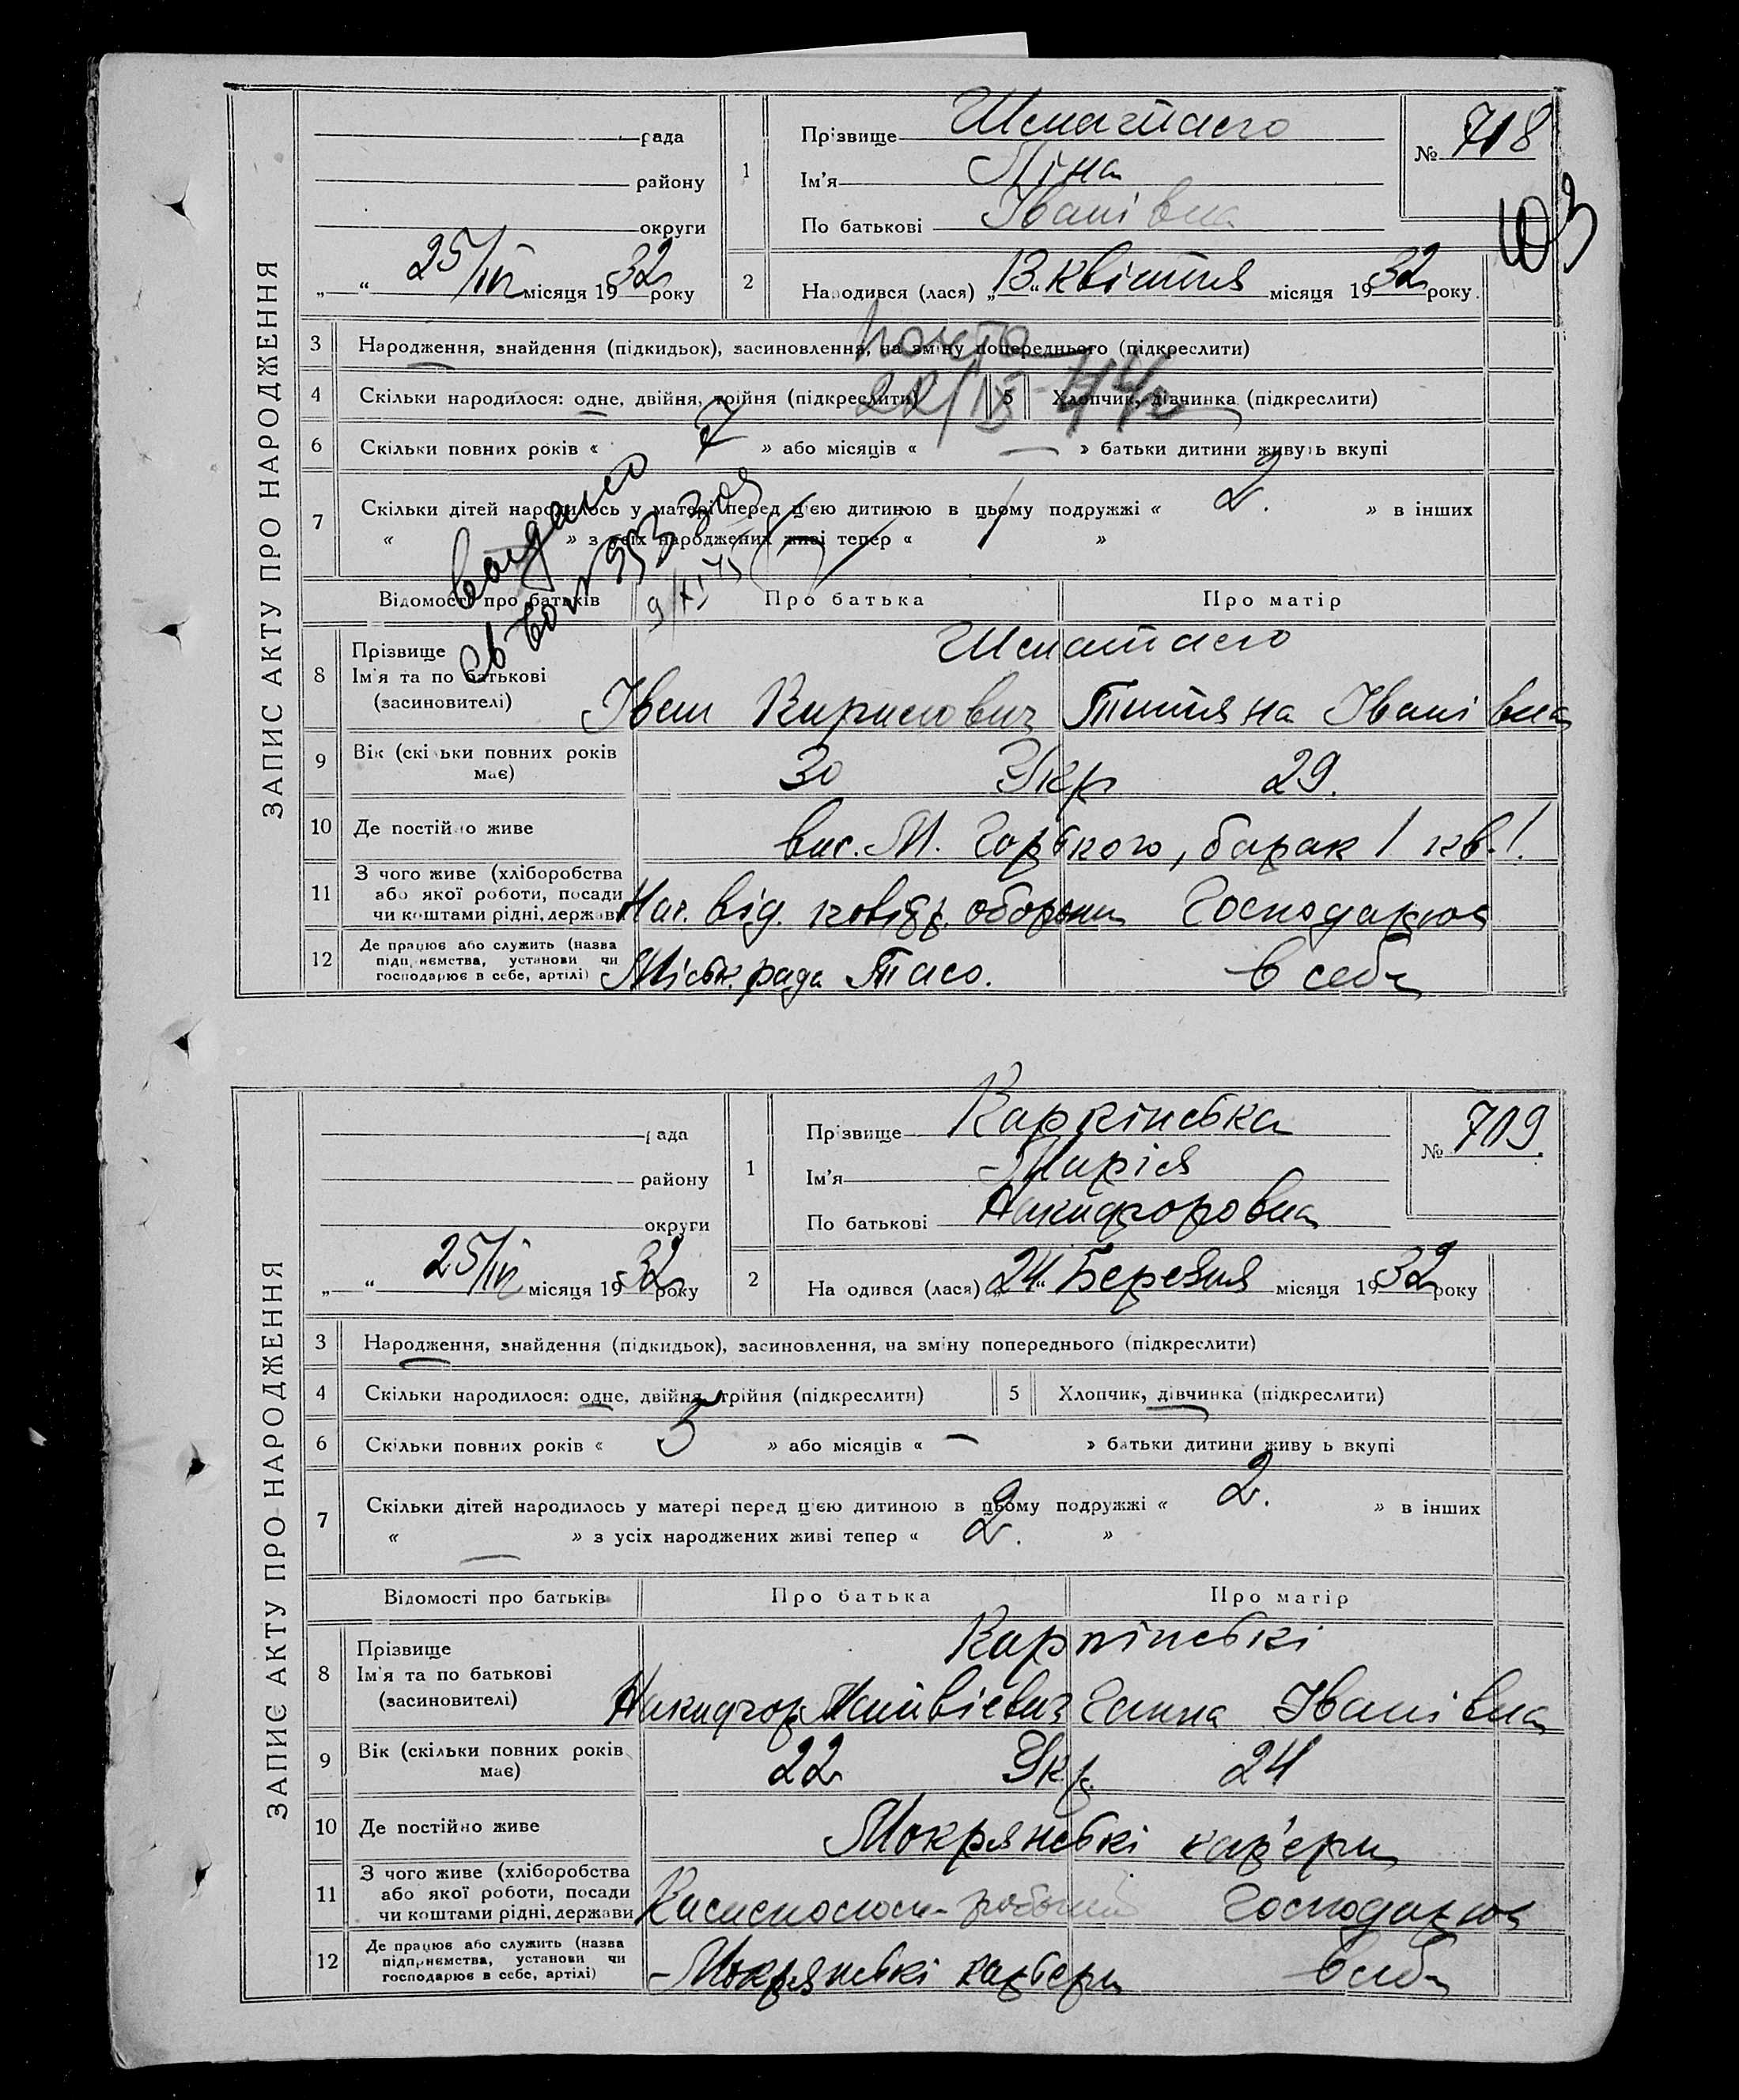 ЗАПИС АКТУ ПРО НАРОДЖЕННЯ
рада
району
округи
25/IV місяця 1932 року
1
Прізвище
Ім'я Ліна
По батькові Іванівна
№ 718
103
2
Народився (лася) „13“ квітня місяця 1932 року
3 Народження, знайдення (підкидьок), засиновлення, на зміну попереднього (підкреслити)
4 Скільки народилося: одне, двійня, трійня (підкреслити) 5 Хлопчик, дівчинка (підкреслити)
6 Скільки повних років « 7 » або місяців « — » батьки дитини живуть вкупі
7 Скільки дітей народилось у матері перед цією дитиною в цьому подружжі « 2. » в інших
« » з усіх народжених живі тепер « 1 »
Відомості про батьків Про батька Про матір
8 Прізвище
Ім'я та по батькові
(засиновителі)
Іван Кирилович Титяна Іванівна
9 Вік (скільки повних років має) 30 Укр 29.
10 Де постійно живе вис. М. Горького, барак 1 кв. 1.
11 З чого живе (хліборобства або якої роботи, посади чи коштами рідні, держави Нач. від. обороны Господарює
12 Де працює або служить (назва підприємства, установи чи господарює в себе, артілі) Міськ. рада в себе
ЗАПИС АКТУ ПРО НАРОДЖЕННЯ
рада
району
округи
25/IV місяця 1932 року
1
Прізвище Карпінська
Ім'я Марія
По батькові Никифоровна
№ 719.
2
Народився (лася) „24“ Березня місяця 1932 року
3 Народження, знайдення (підкидьок), засиновлення, на зміну попереднього (підкреслити)
4 Скільки народилося: одне, двійня, трійня (підкреслити) 5 Хлопчик, дівчинка (підкреслити)
6 Скільки повних років « 5 » або місяців « — » батьки дитини живуть вкупі
7 Скільки дітей народилось у матері перед цією дитиною в цьому подружжі « 2. » в інших
« — » з усіх народжених живі тепер « 2. »
Відомості про батьків Про батька Про матір
8 Прізвище
Ім'я та по батькові
(засиновителі)
Карпінські
Никифор Матвієвич Ганна Іванівна
9 Вік (скільки повних років має) 22 Укр. 24
10 Де постійно живе Мокрянські кар'ери
11 З чого живе (хліборобства або якої роботи, посади чи коштами рідні, держави робочий Господарює
12 Де працює або служить (назва підприємства, установи чи господарює в себе, артілі) Мокрянські карьери в себе